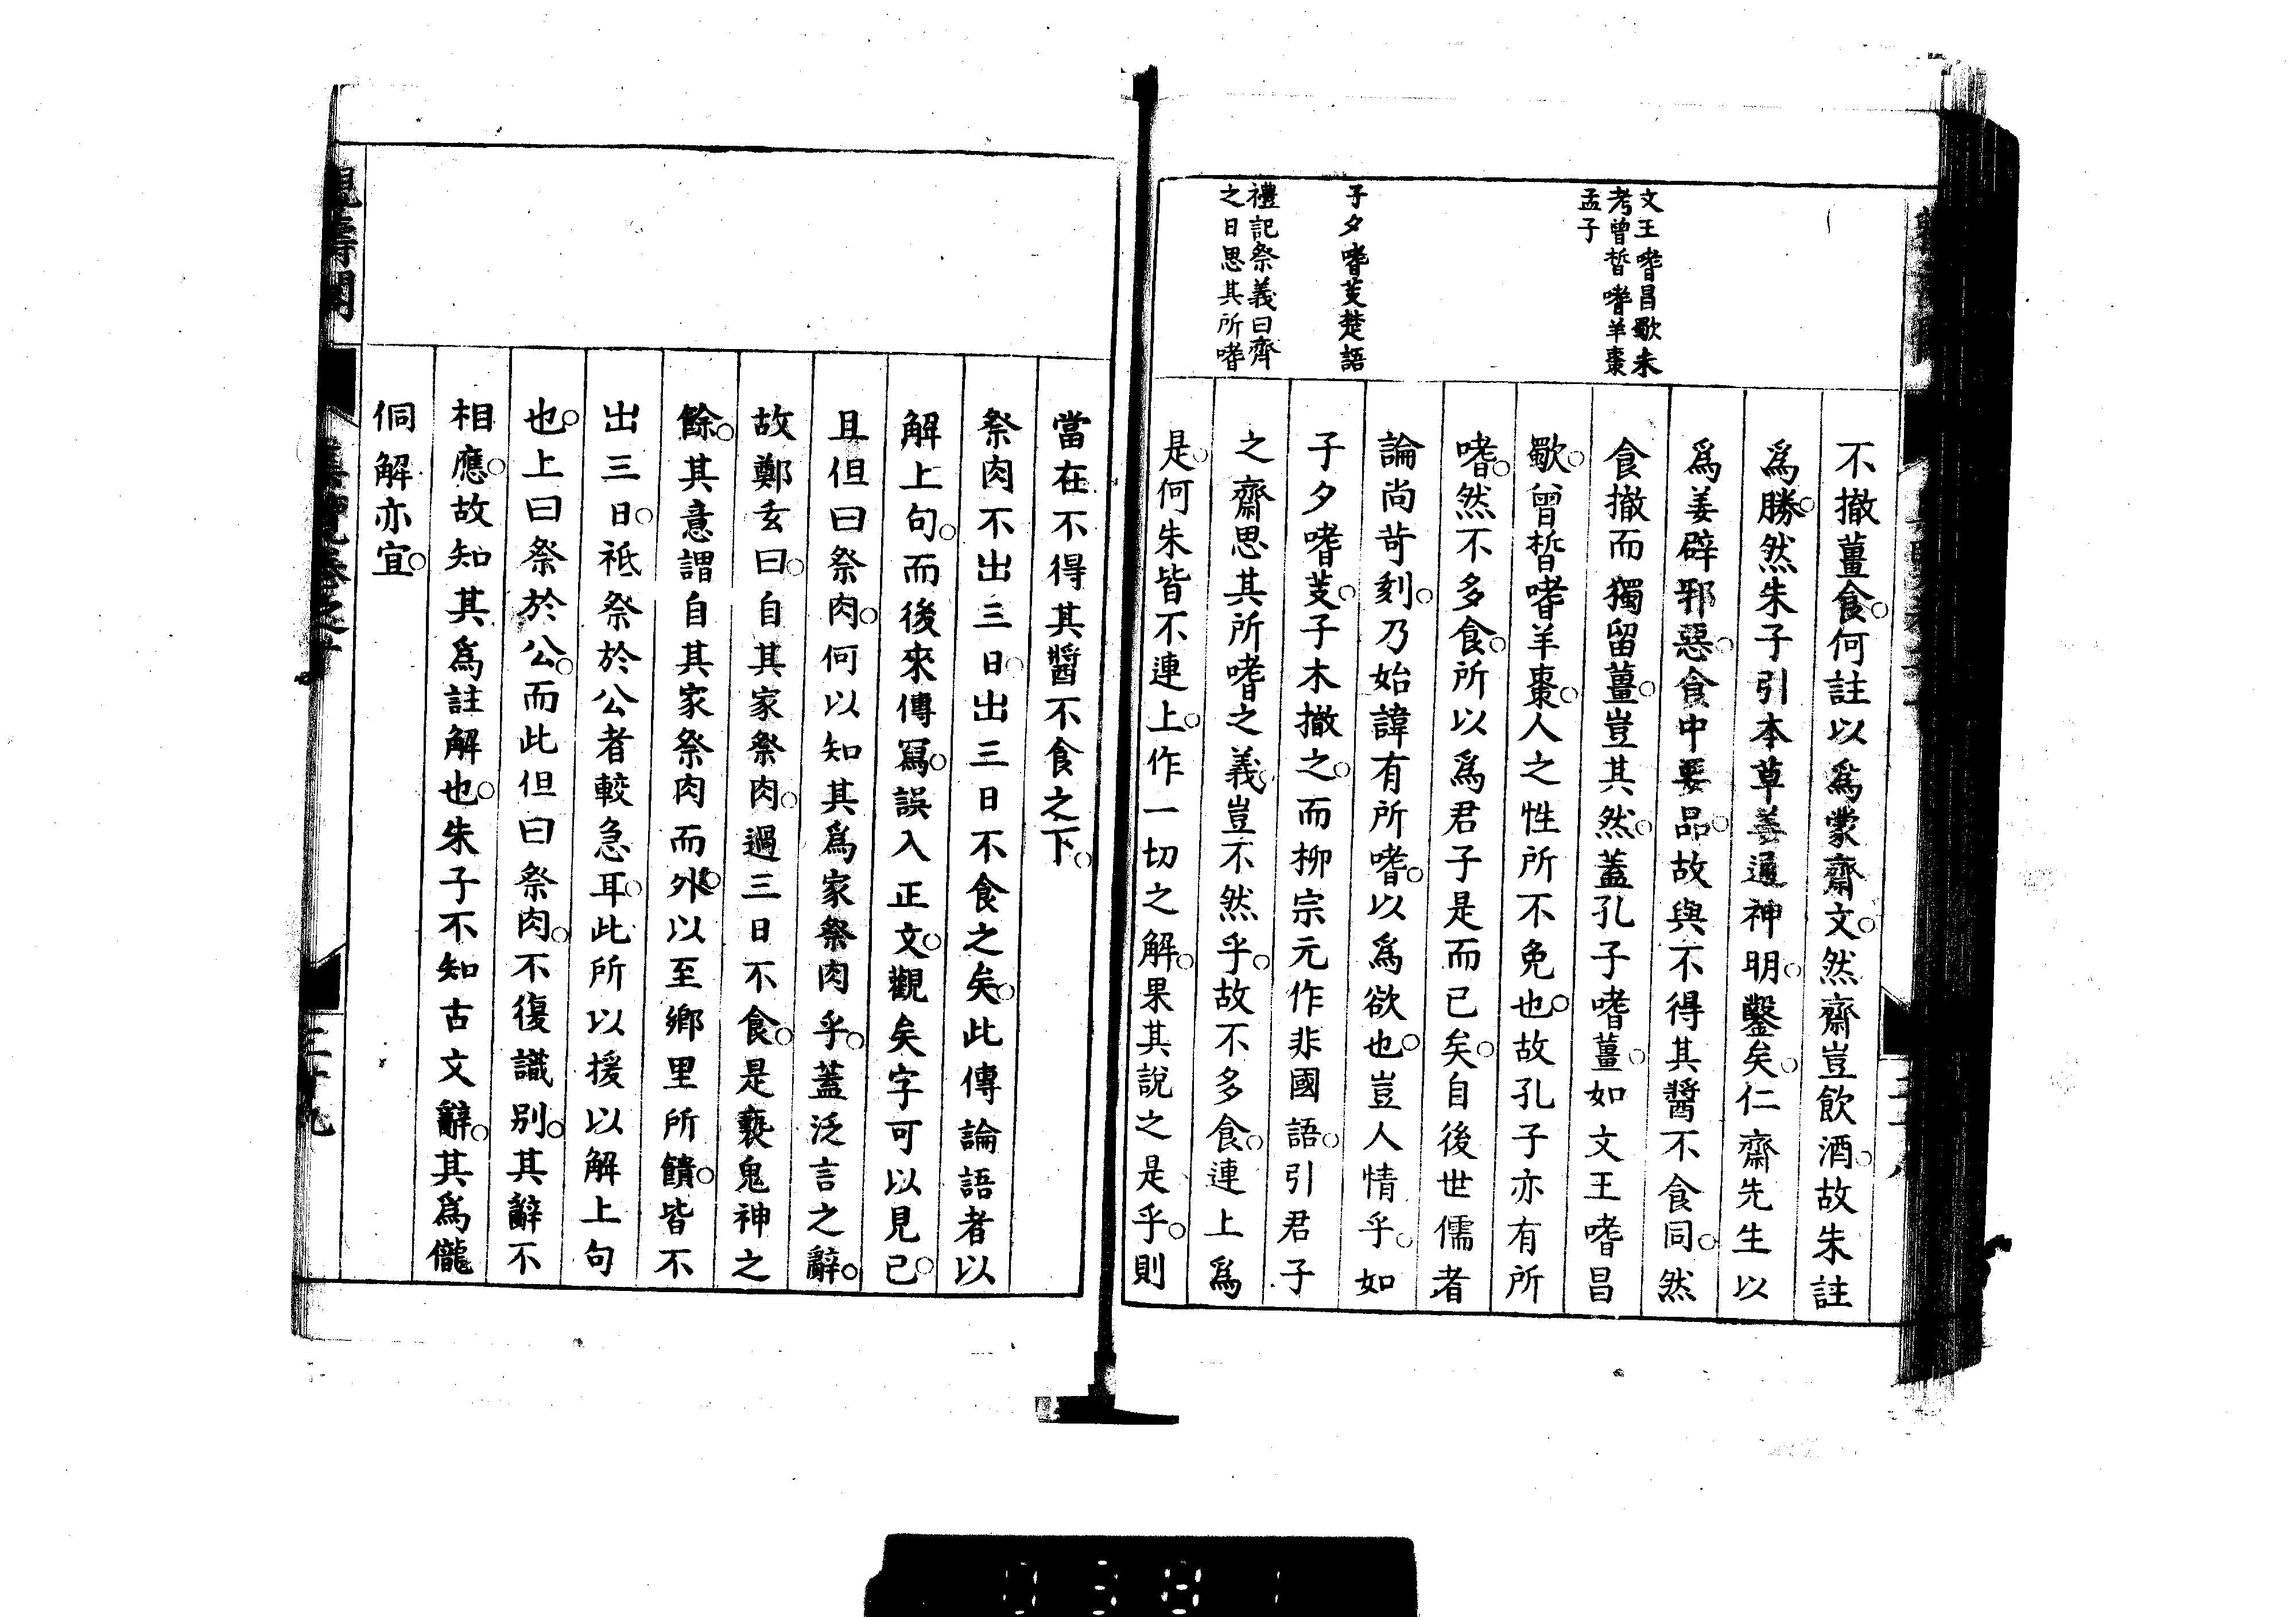 文王嗜昌歜朱
考曾晳嗜羊棗
孟子
子夕嗜芰楚語
禮記祭義曰齊
之日思其所嗜
不撤薑食。何註以爲蒙齋文。然齋豈飲酒。故朱註
爲勝。然朱子引本草薑通神明。鑿矣。仁齋先生以
爲姜辟邪惡。食中要品。故與不得其醬不食同。然
食撤而獨留薑。豈其然。蓋孔子嗜薑。如文王嗜昌
歜。曾晳嗜羊棗。人之性所不免也。故孔子亦有所
嗜。然不多食。所以爲君子是而已矣。自後世儒者
論尚苛刻。乃始諱有所嗜。以爲欲也。豈人情乎。如
子夕嗜芰。子木撤之。而柳宗元作非國語。引君子
之齋思其所嗜之義。豈不然乎。故不多食。連上爲
是。何朱皆不連上。作一切之解。果其說之是乎。則
當在不得其醬不食之下。
祭肉不出三日。出三日不食之矣。此傳論語者以
解上句。而後來傳寫。誤入正文。觀矣字可以見已。
且但曰祭肉。何以知其爲家祭肉乎。蓋泛言之辭。
故鄭玄曰。自其家祭肉。過三日不食。是褻鬼神之
餘。其意謂自其家祭肉而外。以至鄉里所饋。皆不
出三日。祗祭於公者較急耳。此所以援以解上句
也。上曰祭於公。而此但曰祭肉。不復識別。其辭不
相應。故知其爲註解也。朱子不知古文辭。其爲儱
侗解亦宜。